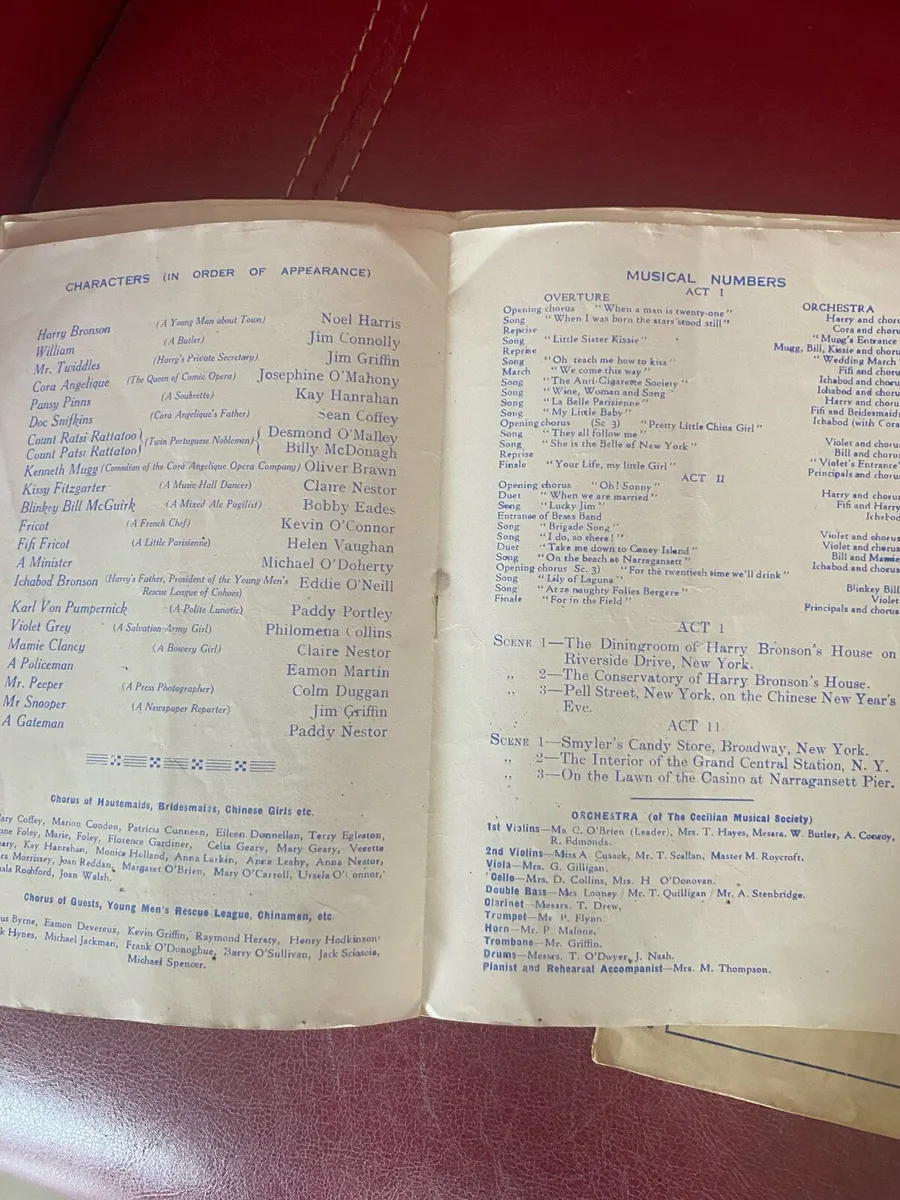 CHARACTERS (IN ORDER OF APPEARANCE)
Harry Bronson (A Young Man about Town) Noel Harris
William (A Butler) Jim Connolly
Mr. Twiddles (Harry's Private Secretary) Jim Griffin
Cora Angelique (The Queen of Comic Opera) Josephine O'Mahony
Pansy Pinns (A Soubrette) Kay Hanrahan
Doc Snifkins (Cora Angelique's Father) Sean Coffey
Count Ratsi Rattatoo (Twin Portuguese Noblemen) Desmond O'Malley
Count Patsi Rattatoo Billy McDonagh
Kenneth Mugg (Comedian of the Cora Angelique Opera Company) Oliver Brawn
Kissy Fitzgarter (A Music Hall Dancer) Claire Nestor
Blinkey Bill McGuirk (A Mixed Ale Pugilist) Bobby Eades
Fricot (A French Chef) Kevin O'Connor
Fifi Fricot (A Little Parisienne) Helen Vaughan
A Minister Michael O'Doherty
Ichabod Bronson (Harry's Father, President of the Young Men's Rescue League of Cohoes) Eddie O'Neill
Karl Von Pumpernick (A Polite Lunatic) Paddy Portley
Violet Grey (A Salvation Army Girl) Philomena Collins
Mamie Clancy (A Bowery Girl) Claire Nestor
A Policeman Eamon Martin
Mr. Peeper (A Press Photographer) Colm Duggan
Mr Snooper (A Newspaper Reporter) Jim Griffin
A Gateman Paddy Nestor
Chorus of Housemaids, Bridesmaids, Chinese Girls etc.
Coffey, Marion Condon, Patricia Cunneen, Eileen Donnellan, Terry Egleston,
Foley, Marie, Foley, Florence Gardiner, Celia Geary, Mary Geary, Verette
Kay Hanrahan, Monica Holland, Anna Larkin, Anne Leahy, Anna Nestor,
Morrissey, Joan Reddan, Margaret O'Brien, Mary O'Carroll, Ursela O'Connor,
Rochford, Joan Walsh.
Chorus of Guests, Young Men's Rescue League, Chinamen, etc.
Byrne, Eamon Devereux, Kevin Griffin, Raymond Heraty, Henry Hodkinson
Hynes, Michael Jackman, Frank O'Donoghue, Barry O'Sullivan, Jack Sciascia,
Michael Spencer.
MUSICAL NUMBERS
ACT I
OVERTURE ORCHESTRA
Opening chorus "When a man is twenty-one" Harry and
Song "When I was born the stars stood still" Cora and
Reprise "Mugg's Entrance
Song "Little Sister Kissie" Mugg, Bill, Kissie and
Reprise "Wedding March
Song "Oh teach me how to kiss" Fifi and
March "We come this way" Ichabod and
Song "The Anti-Cigarette Society" Ichabod and
Song "Wine, Woman and Song" Harry and
Song "La Belle Parisienne" Fifi and Bridesmaids
Song "My Little Baby" Ichabod (with Cora
Opening chorus (Sc 3) "Pretty Little China Girl"
Song "They all follow me" Violet and
Song "She is the Belle of New York" Bill and
Reprise "Violet's Entrance"
Finale "Your Life, my little Girl" Principals and
ACT II
Opening chorus "Oh! Sonny" Harry and
Duet "When we are married" Fifi and Harry
Song "Lucky Jim" Ichabod
Entrance of Brass Band
Song "Brigade Song" Violet and
Song "I do, so there!" Violet and
Duet "Take me down to Coney Island" Bill and Mamie
Song "On the beach at Narragansett" Ichabod and
Opening chorus Sc. 3) "For the twentieth time we'll drink"
Song "Lily of Laguna" Blinkey Bill
Song "At ze naughty Folies Bergere" Violet
Finale "For in the Field" Principals and
ACT 1
SCENE 1—The Diningroom of Harry Bronson's House on
Riverside Drive, New York.
„ 2—The Conservatory of Harry Bronson's House.
„ 3—Pell Street, New York, on the Chinese New Year's
Eve.
ACT 11
SCENE 1—Smyler's Candy Store, Broadway, New York.
„ 2—The Interior of the Grand Central Station, N. Y.
„ 3—On the Lawn of the Casino at Narragansett Pier.
ORCHESTRA (of The Cecilian Musical Society)
1st Violins—Mr. C. O'Brien (Leader), Mrs. T. Hayes, Messrs. W. Butler, A. Conroy,
R. Edmonds.
2nd Violins—Miss A. Cusack, Mr. T. Scallan, Master M. Roycroft.
Viola—Mrs. G. Gilligan.
'Cello—Mrs. D. Collins, Mrs. H O'Donovan.
Double Bass—Mrs Looney / Mr. T. Quilligan / Mr. A. Stenbridge.
Clarinet—Messrs. T. Drew,
Trumpet—Mr P. Flynn
Horn—Mr. P Malone,
Trombone—Mr. Griffin.
Drums—Messrs. T. O'Dwyer, J. Nash.
Pianist and Rehearsal Accompanist—Mrs. M. Thompson.